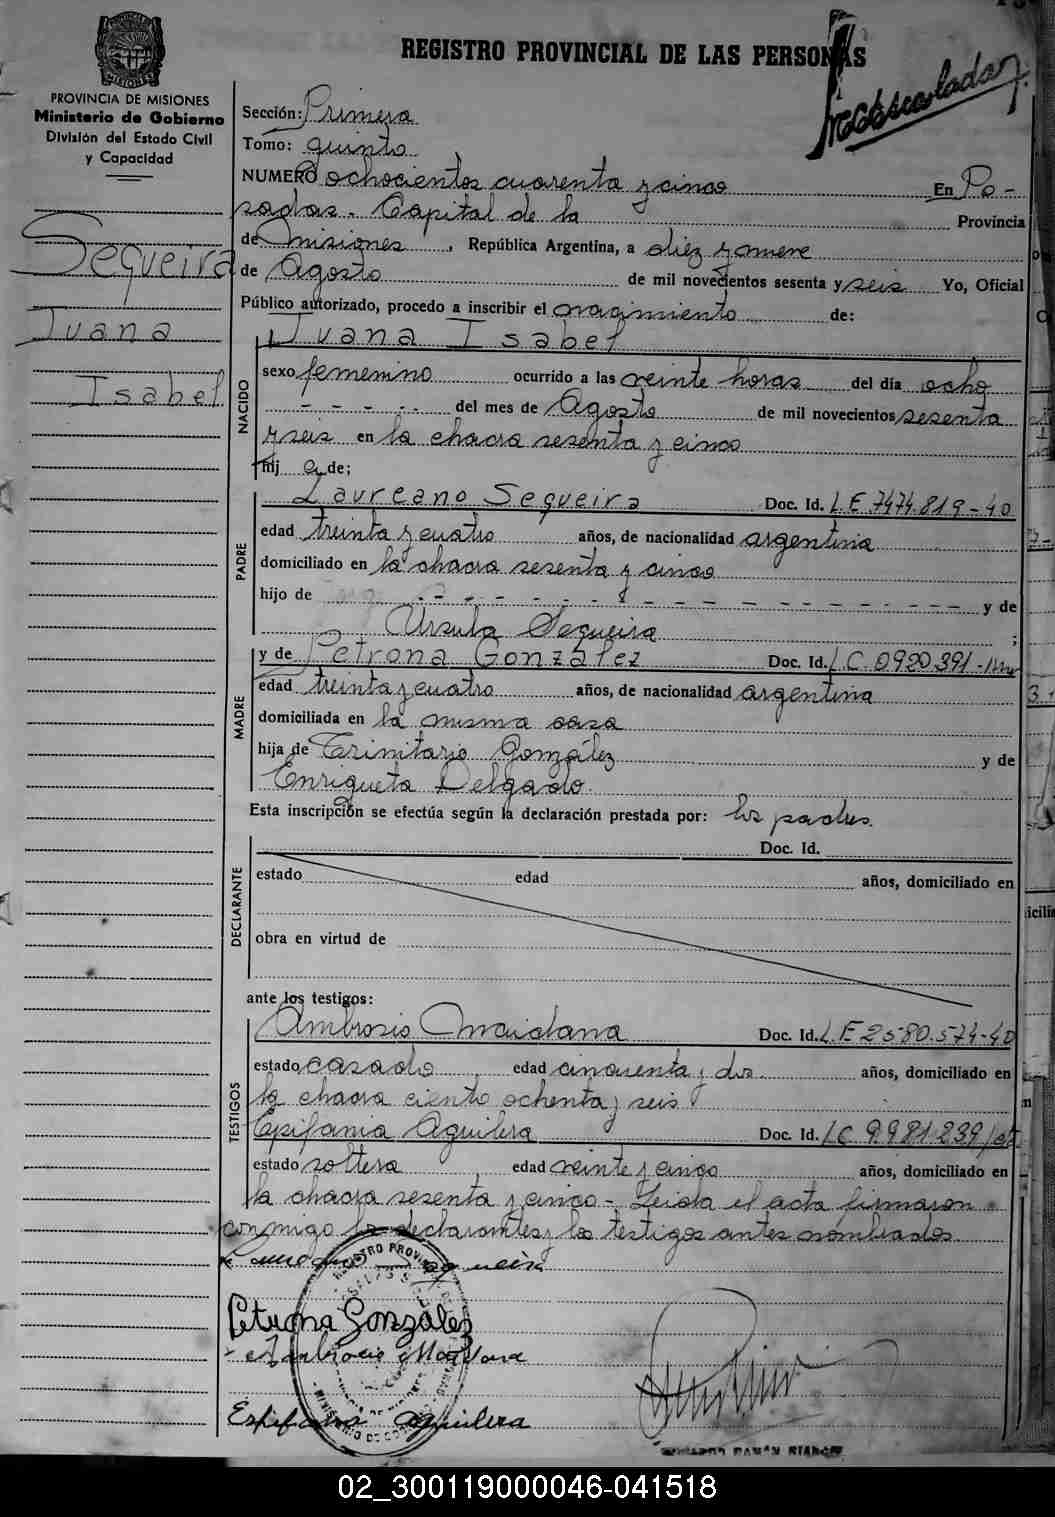 REGISTRO PROVINCIAL DE LAS PERSONAS
PROVINCIA DE MISIONES
Ministerio de Gobierno
División del Estado Civil
y Capacidad
Sequeira
Juana
Isabel
Sección: Primera
Tomo: quinto
NUMERO ochocientos cuarenta y cinco En Po-
sadas. Capital de la Provincia
de Misiones, República Argentina, a diez y nueve
de Agosto de mil novecientos sesenta y seis Yo, Oficial
Público autorizado, procedo a inscribir el nacimiento de:
NACIDO
Juana Isabel
sexo femenino ocurrido a las veinte horas del día ocho
- - - - - del mes de Agosto de mil novecientos sesenta
y seis en la chacra sesenta y cinco
hij a de;
PADRE
Laureano Sequeira Doc. Id. L.E 7474.819-40
edad treinta y cuatro años, de nacionalidad argentina
domiciliado en la chacra sesenta y cinco
hijo de - - - - - - - - - - - - - - - - y de
Ursula Sequeira ;
MADRE
y de Petrona González Doc. Id. L C. 0920391-
edad treinta y cuatro años, de nacionalidad argentina
domiciliada en la misma casa
hija de Trinitario González y de
Enriqueta Delgado.
Esta inscripción se efectúa según la declaración prestada por: los padres.
DECLARANTE
Doc. Id.
estado edad años, domiciliado en
obra en virtud de
ante los testigos:
TESTIGOS
Ambrosio Maidana Doc. Id. L.E 2580.574-40
estado casado edad cincuenta y dos años, domiciliado en
la chacra ciento ochenta y seis
Epifania Aguilera Doc. Id. L C. 9.981.239
estado soltera edad veinte y cinco años, domiciliado en
la chacra sesenta y cinco - Leida el acta firmaron
conmigo los declarantes y los testigos antes nombrados.
Sequeira
Petrona González
Ambrosio Maidana
Epifania Aguilera
REGISTRO PROVINCIAL
RAMÓN
02_300119000046-041518